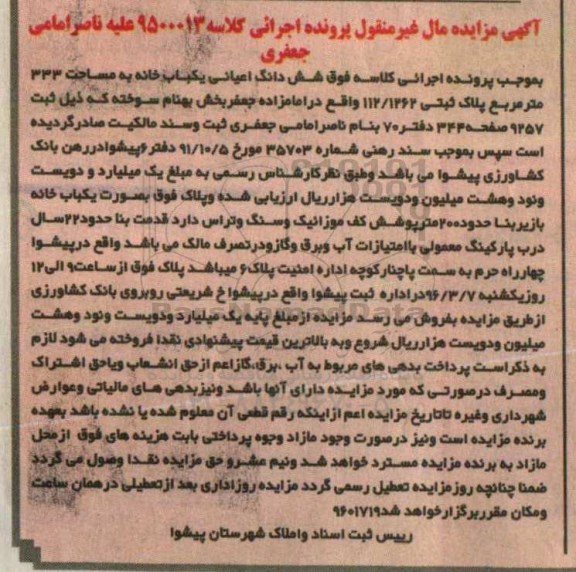 آگهی مزایده مال غیرمنقول پرونده اجرائی کلاسه ۹۵۰۰۰۱۳ علیه ناصرامامی
جعفری
بموجب پرونده اجرائی کلاسه فوق شش دانگ اعیانی یکباب خانه به مساحت ۳۳۳
مترمربع پلاک ثبتی ۱۱۲/۱۲۶۲ واقع درامامزاده جعفربخش بهنام سوخته که ذیل ثبت
۹۲۵۷ صفحه۳۴۴ دفتر۷۰ بنام ناصرامامی جعفری ثبت وسند مالکیت صادرگردیده
است سپس بموجب سند رهنی شماره ۳۵۷۰۳ مورخ ۹۱/۱۰/۵ دفتر۶پیشوادررهن بانک
کشاورزی پیشوا می باشد وطبق نظرکارشناس رسمی به مبلغ یک میلیارد و دویست
ونود وهشت میلیون ودویست هزارریال ارزیابی شده وپلاک فوق بصورت یکباب خانه
بازیربنا حدود۲۰۰مترپوشش کف موزائیک وسنگ وتراس دارد قدمت بنا حدود۲۲سال
درب پارکینگ معمولی باامتیازات آب وبرق وگازودرتصرف مالک می باشد واقع درپیشوا
چهارراه حرم به سمت پاچنارکوچه اداره امنیت پلاک۶ میباشد پلاک فوق ازساعت۹ الی۱۲
روزیکشنبه ۹۶/۳/۷دراداره ثبت پیشوا واقع درپیشواخ شریعتی روبروی بانک کشاورزی
ازطریق مزایده بفروش می رسد مزایده ازمبلغ پایه یک میلیارد ودویست ونود وهشت
میلیون ودویست هزارریال شروع وبه بالاترین قیمت پیشنهادی نقدا فروخته می شود لازم
به ذکراست پرداخت بدهی های مربوط به آب ،برق،گازاعم ازحق انشعاب ویاحق اشتراک
ومصرف درصورتی که مورد مزایده دارای آنها باشد ونیزبدهی های مالیاتی وعوارض
شهرداری وغیره تاتاریخ مزایده اعم ازاینکه رقم قطعی آن معلوم شده یا نشده باشد بعهده
برنده مزایده است ونیز درصورت وجود مازاد وجوه پرداختی بابت هزینه های فوق ازمحل
مازاد به برنده مزایده مسترد خواهد شد ونیم عشرو حق مزایده نقدا وصول می گردد
ضمنا چنانچه روزمزایده تعطیل رسمی گردد مزایده روزاداری بعد ازتعطیلی درهمان ساعت
ومکان مقرربرگزارخواهد شد۹۶۰۱۷۱۹
رییس ثبت اسناد واملاک شهرستان پیشوا